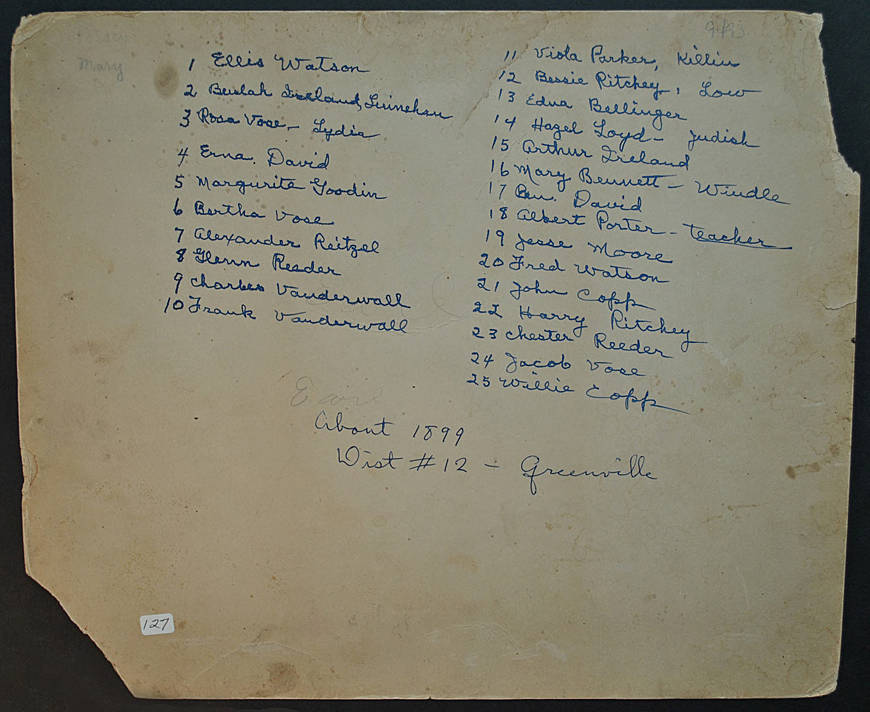 Mary
1 Ellis Watson
2 Beulah Ireland, Linnehan
3 Rosa Vose - Lydia
4 Erna. David
5 Margurite Goodin
6 Bertha Vose
7 Alexander Reitzel
8 Glenn Reeder
9 Charles Vanderwall
10 Frank Vanderwall
11 Viola Parker, Killin
12 Bessie Ritchey, Low
13 Edna Bellinger
14 Hazel Loyd - Judish
15 Arthur Ireland
16 Mary Bennett - Windle
17 Ben. David
18 Albert Porter - teacher
19 Jesse Moore
20 Fred Watson
21 John Copp
22 Harry Ritchey
23 Chester Reeder
24 Jacob Vose
25 Willie Copp
About 1899
Dist #12 - Greenville
127